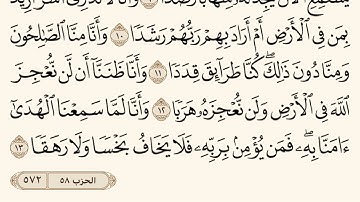 بِمَن فِي ٱلْأَرْضِ أَمْ أَرَادَ بِهِمْ رَبُّهُمْ رَشَدًا ١٠ وَأَنَّا مِنَّا ٱلصَّٰلِحُونَ
وَمِنَّا دُونَ ذَٰلِكَ ۖ كُنَّا طَرَآئِقَ قِدَدًا ١١ وَأَنَّا ظَنَنَّآ أَن لَّن نُّعْجِزَ
ٱللَّهَ فِي ٱلْأَرْضِ وَلَن نُّعْجِزَهُۥ هَرَبًا ١٢ وَأَنَّا لَمَّا سَمِعْنَا ٱلْهُدَىٰٓ
ءَامَنَّا بِهِۦ ۖ فَمَن يُؤْمِنۢ بِرَبِّهِۦ فَلَا يَخَافُ بَخْسًا وَلَا رَهَقًا ١٣
الحزب ٥٨ ٥٧٢